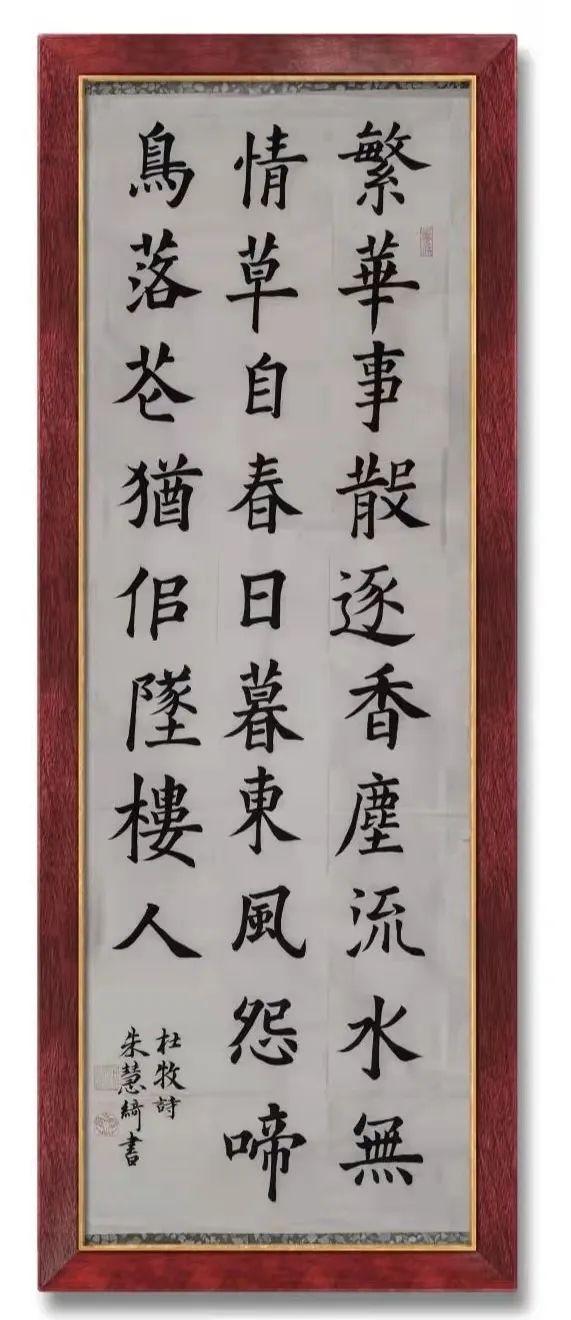 繁華事散逐香塵流水無
情草自春日暮東風怨啼
鳥落花猶佀墜樓人
杜牧詩
朱慧綺書